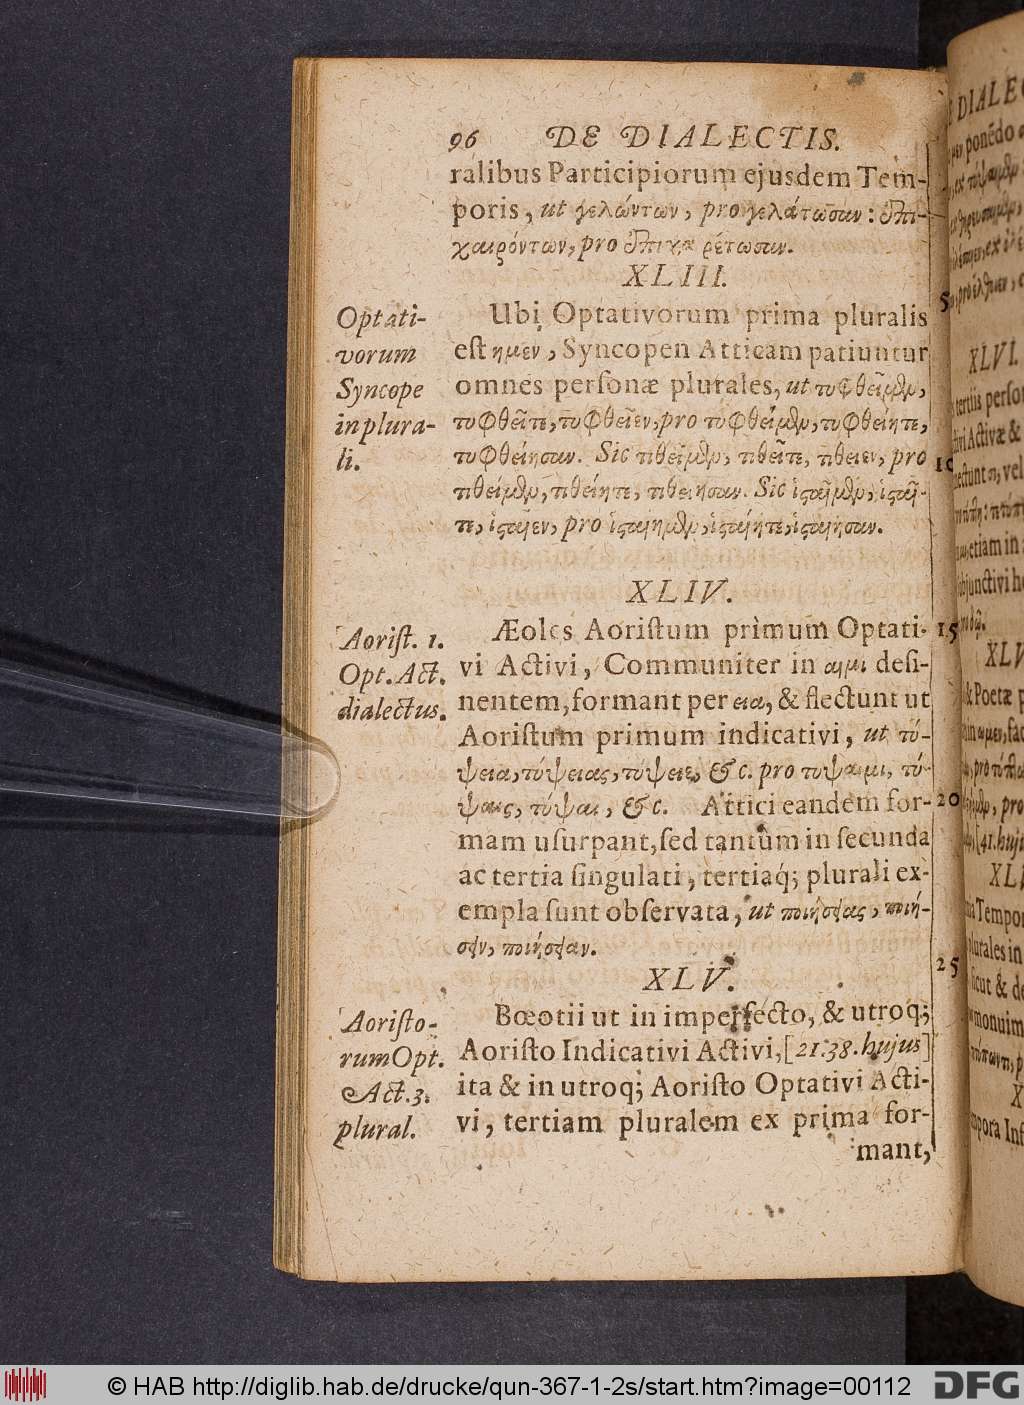 96 DE DIALECTIS.
ralibus Participiorum ejusdem Tem-
poris, ut γελώντων, pro γελάτωσαν: ἐπι-
χαιρόντων, pro ἐπιχαιρέτωσαν.
XLIII.
Optati-
vorum
Syncope
in plura-
li.
Ubi Optativorum prima pluralis
est ημεν, Syncopen Atticam patiuntur
omnes personæ plurales, ut τυφθεῖμϑμ,
τυφθεῖτε, τυφθεῖεν, pro τυφθείημεν, τυφθείητε,
τυφθείησαν. Sic τιθεῖμεν, τιθεῖτε, τιθεῖεν, pro
τιθείημεν, τιθείητε, τιθείησαν. Sic ἱσταῖμεν, ἱσταῖ-
τε, ἱσταῖεν, pro ἱσταίημεν, ἱσταίητε, ἱσταίησαν.
XLIV.
Aorist. 1.
Opt. Act.
dialectus.
Æoles Aoristum primum Optati-
vi Activi, Communiter in αιμι desi-
nentem, formant per εια, & flectunt ut
Aoristum primum indicativi, ut τύ-
ψεια, τύψειας, τύψειε, &c. pro τυψαιμι, τύ-
ψαις, τύψαι, &c. Attici eandem for-
mam usurpant, sed tantùm in secunda
ac tertia singulari, tertiaq; plurali ex-
empla sunt observata, ut ποιήσειας, ποιή-
σειεν, ποιήσειαν.
XLV.
Aoristo-
rum Opt.
Act. 3.
plural.
Bœotii ut in imperfecto, & utroq;
Aoristo Indicativi Activi, [21. 38. hujus]
ita & in utroq; Aoristo Optativi Acti-
vi, tertiam pluralem ex prima for-
mant,
5
10
15
20
25
DIALEC
ponēdo
XLVI.
tertiis perso
Activæ &
vel
etiam in
bjunctivi
XLV
& Poetæ p
pro
[41. huju
XLI
Tempor
plurales in
sicut & de
monuim
X
pora Inf
© HAB http://diglib.hab.de/drucke/qun-367-1-2s/start.htm?image=00112
DFG